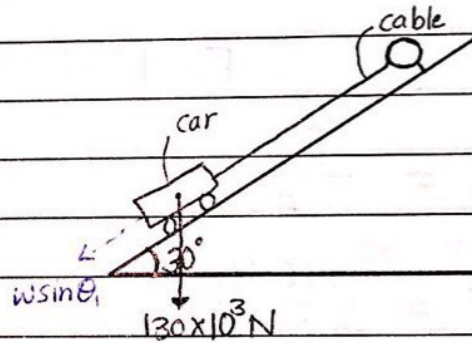 cable
car
30°
wsinθ₁
130×10³N